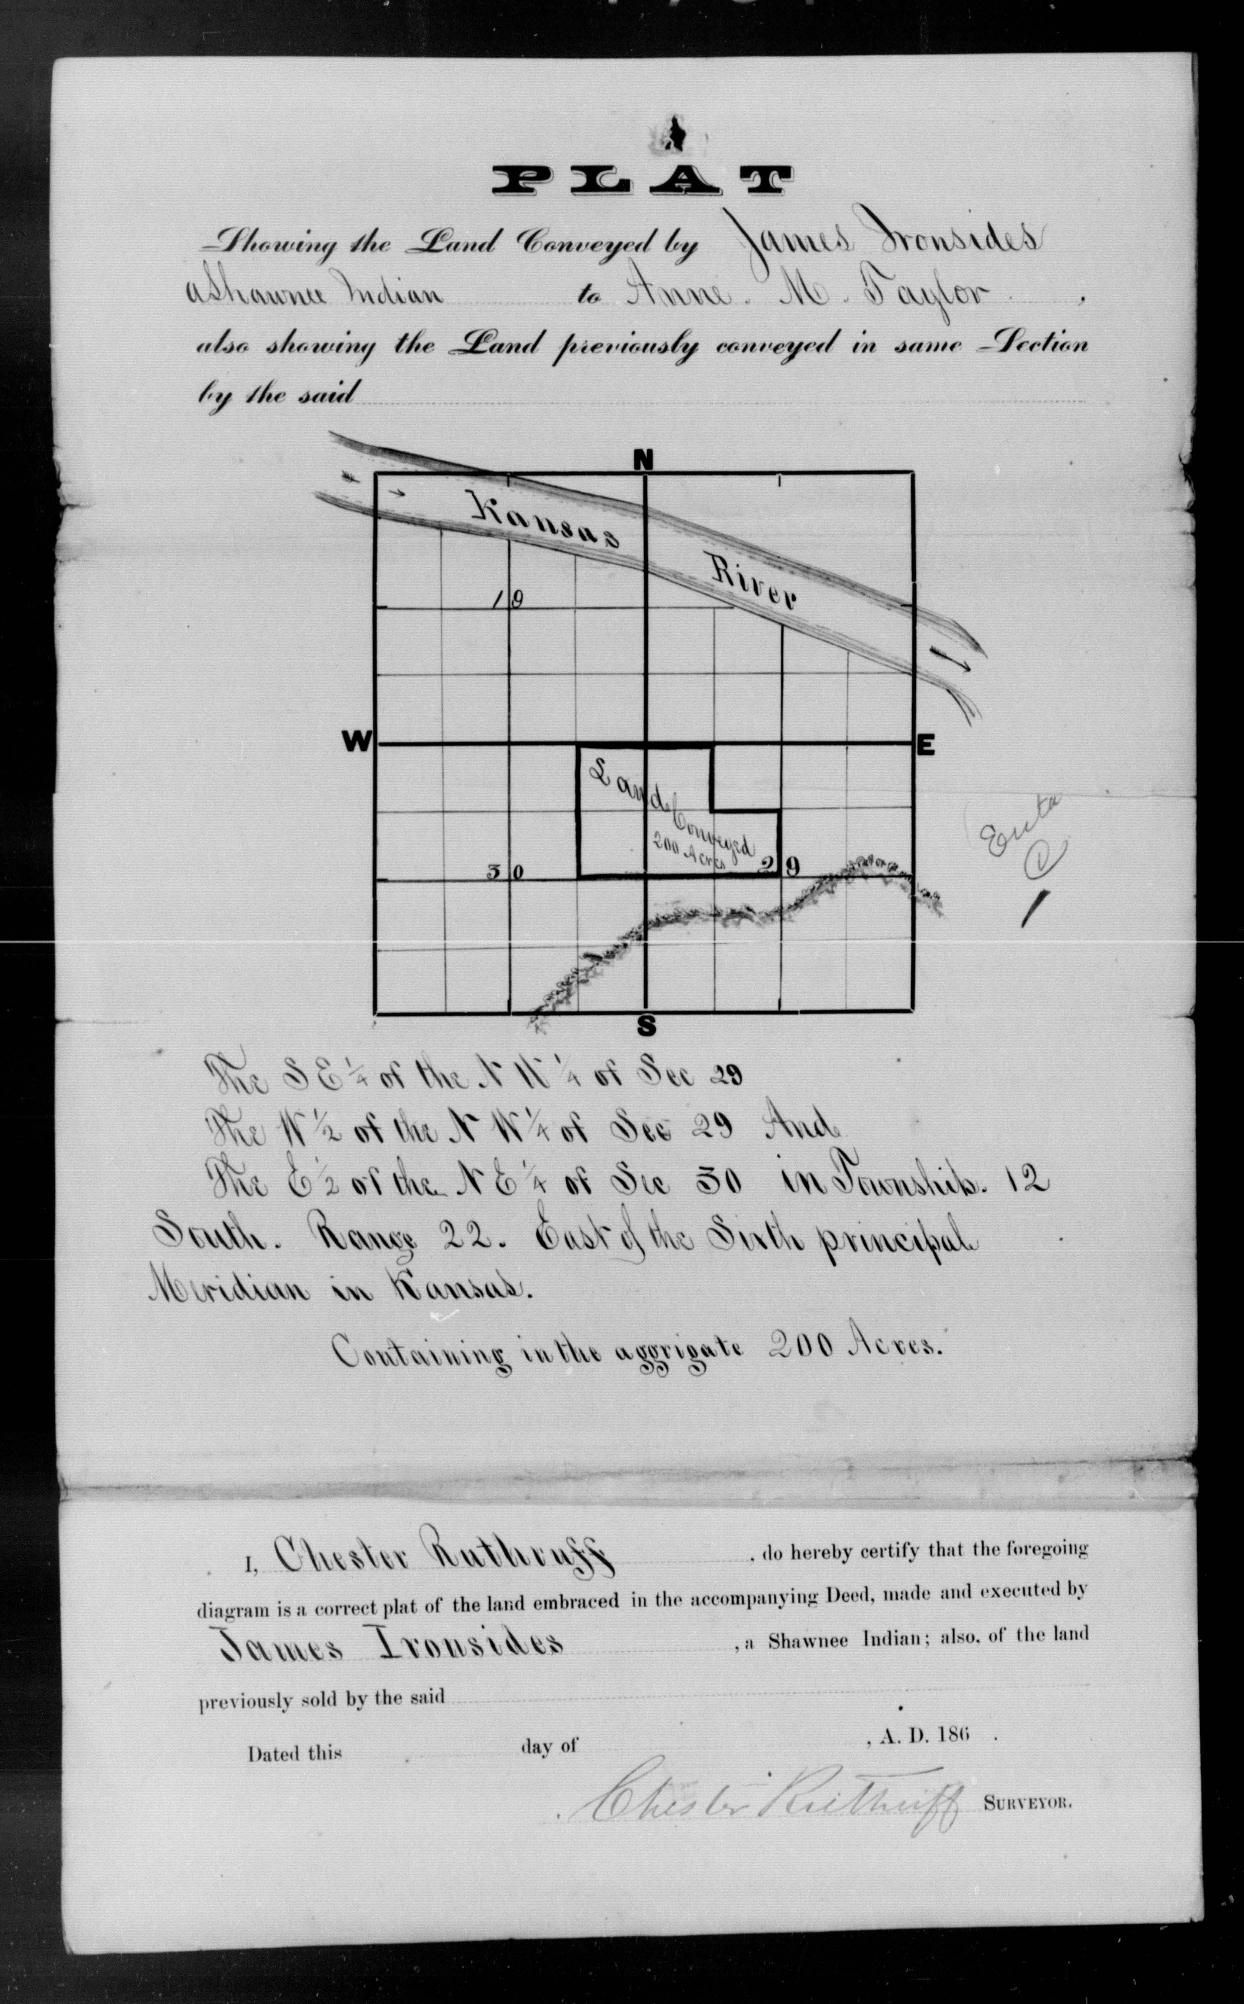 PLAT
Showing the Land Conveyed by James Ironsides
a Shawnee Indian to Anne. M. Taylor ,
also showing the Land previously conveyed in same Section
by the said
N
Kansas
River
19
W
E
Land
Conveyed
200 Acres
30
29
S
The S E ¼ of the N W ¼ of Sec 29
The W ½ of the N W ¼ of Sec 29 And
The E ½ of the N E ¼ of Sec 30 in Township. 12
South. Range 22. East of the Sixth principal
Meridian in Kansas.
Containing in the aggrigate 200 Acres.
I, Chester Ruthruff , do hereby certify that the foregoing
diagram is a correct plat of the land embraced in the accompanying Deed, made and executed by
James Ironsides , a Shawnee Indian; also, of the land
previously sold by the said
Dated this day of , A. D. 186 .
Chester Ruthruff SURVEYOR.